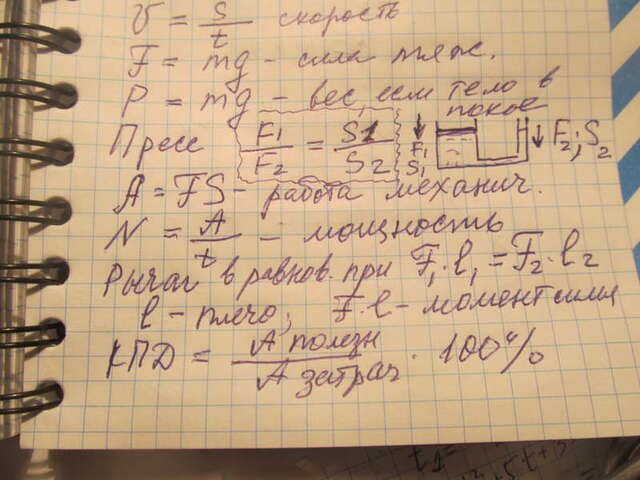 V = S/t скорость
F = mg - сила тяж.
P = mg - вес, если тело в покое
Пресс F1/F2 = S1/S2 F1 S1 F2; S2
A = FS - работа механич.
N = A/t - мощность
Рычаг в равнов. при F1·l1 = F2·l2
l - плечо; F·l - момент силы
КПД = A полезн / A затрач · 100%